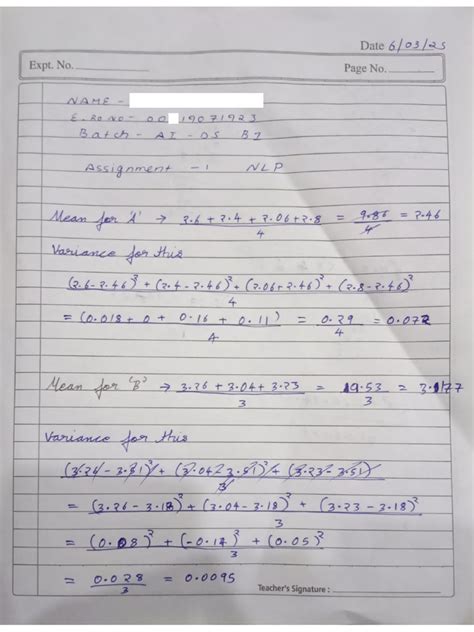 Date 6/03/25
Expt. No.
Page No.
NAME -
E.Ro No - 00 19071923
Batch - AI - DS B2
Assignment - 1 NLP
Mean for 'A' → 2.6 + 2.4 + 2.06 + 2.8 / 4 = 9.86 / 4 = 2.46
Variance for this
(2.6 - 2.46)² + (2.4 - 2.46)² + (2.06 + 2.46)² + (2.8 - 2.46)² / 4
= (0.018 + 0 + 0.16 + 0.11) / 4 = 0.29 / 4 = 0.072
Mean for 'B' → 3.26 + 3.04 + 3.23 / 3 = 19.53 / 3 = 3.177
Variance for this
= (3.26 - 3.18)² + (3.04 - 3.18)² + (3.23 - 3.18)² / 3
= (0.08)² + (-0.14)² + (0.05)² / 3
= 0.028 / 3 = 0.0095
Teacher's Signature :